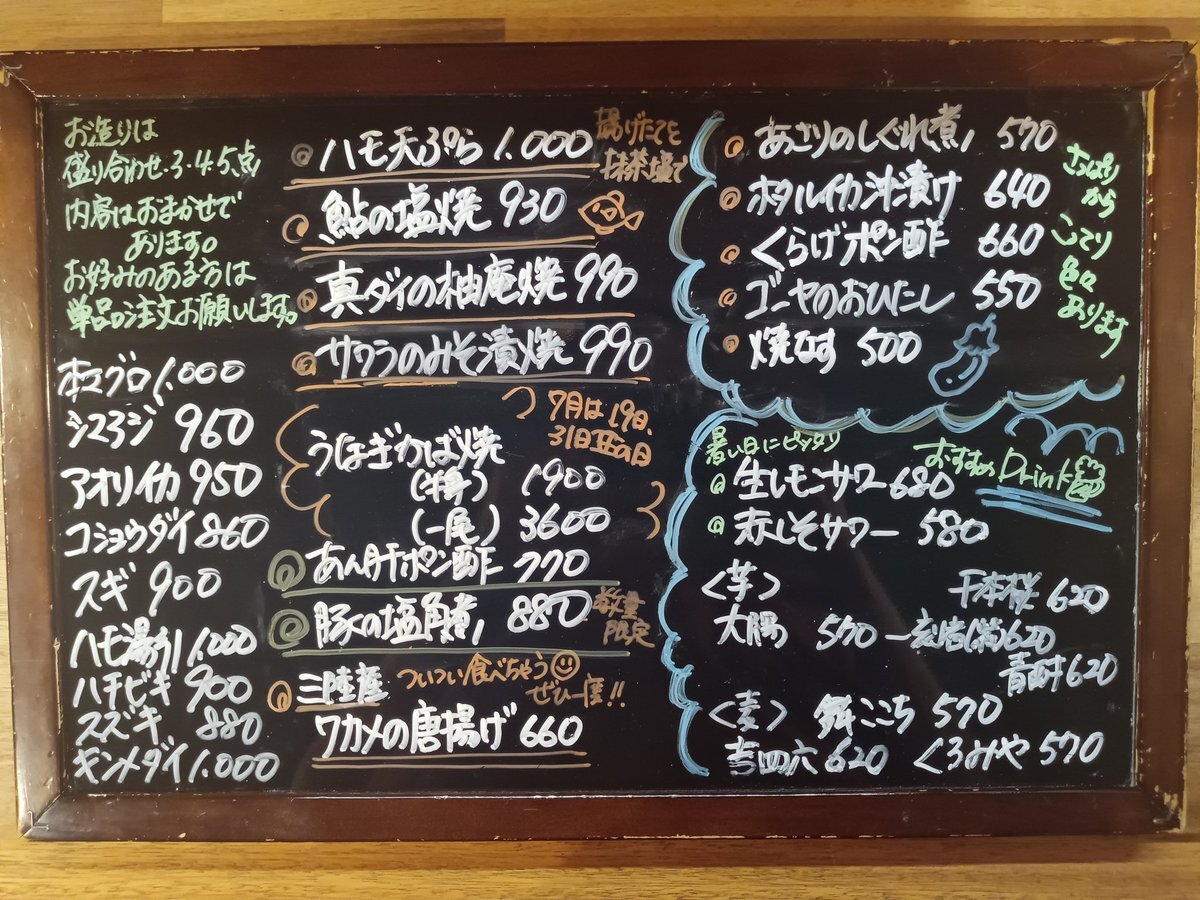 お造りは
盛り合わせ・3・4・5点
内容はおまかせで
あります。
お好みのある方は
単品の注文お願いします。
本マグロ 1.000
シマアジ 960
アオリイカ 950
コショウダイ 860
スギ 900
ハモ湯引 1.000
ハチビキ 900
スズキ 880
キンメダイ 1.000
ハモ天ぷら 1.000
揚げたてを
抹茶塩で
鮎の塩焼 930
真ダイの柚庵焼 990
サワラのみそ漬焼 990
7月は19日、
31日丑の日
うなぎかば焼
(半身) 1900
(一尾) 3600
あん肝ポン酢 770
豚の塩角煮 880
数量
限定
三陸産
ついつい食べちゃう
ぜひ一度!!
ワカメの唐揚げ 660
あさりのしぐれ煮 570
ホタルイカ汁漬け 640
くらげポン酢 660
ゴーヤのおひたし 550
焼なす 500
さっぱり
から
こってり
色々
あります
暑い日にピッタリ
おすすめ Drink
生レモンサワー 680
赤しそサワー 580
<芋>
千本桜 620
大陽 570
一刻岩(紫) 620
青酎 620
<麦>
舞ここち 570
吉四六 620
くろみや 570